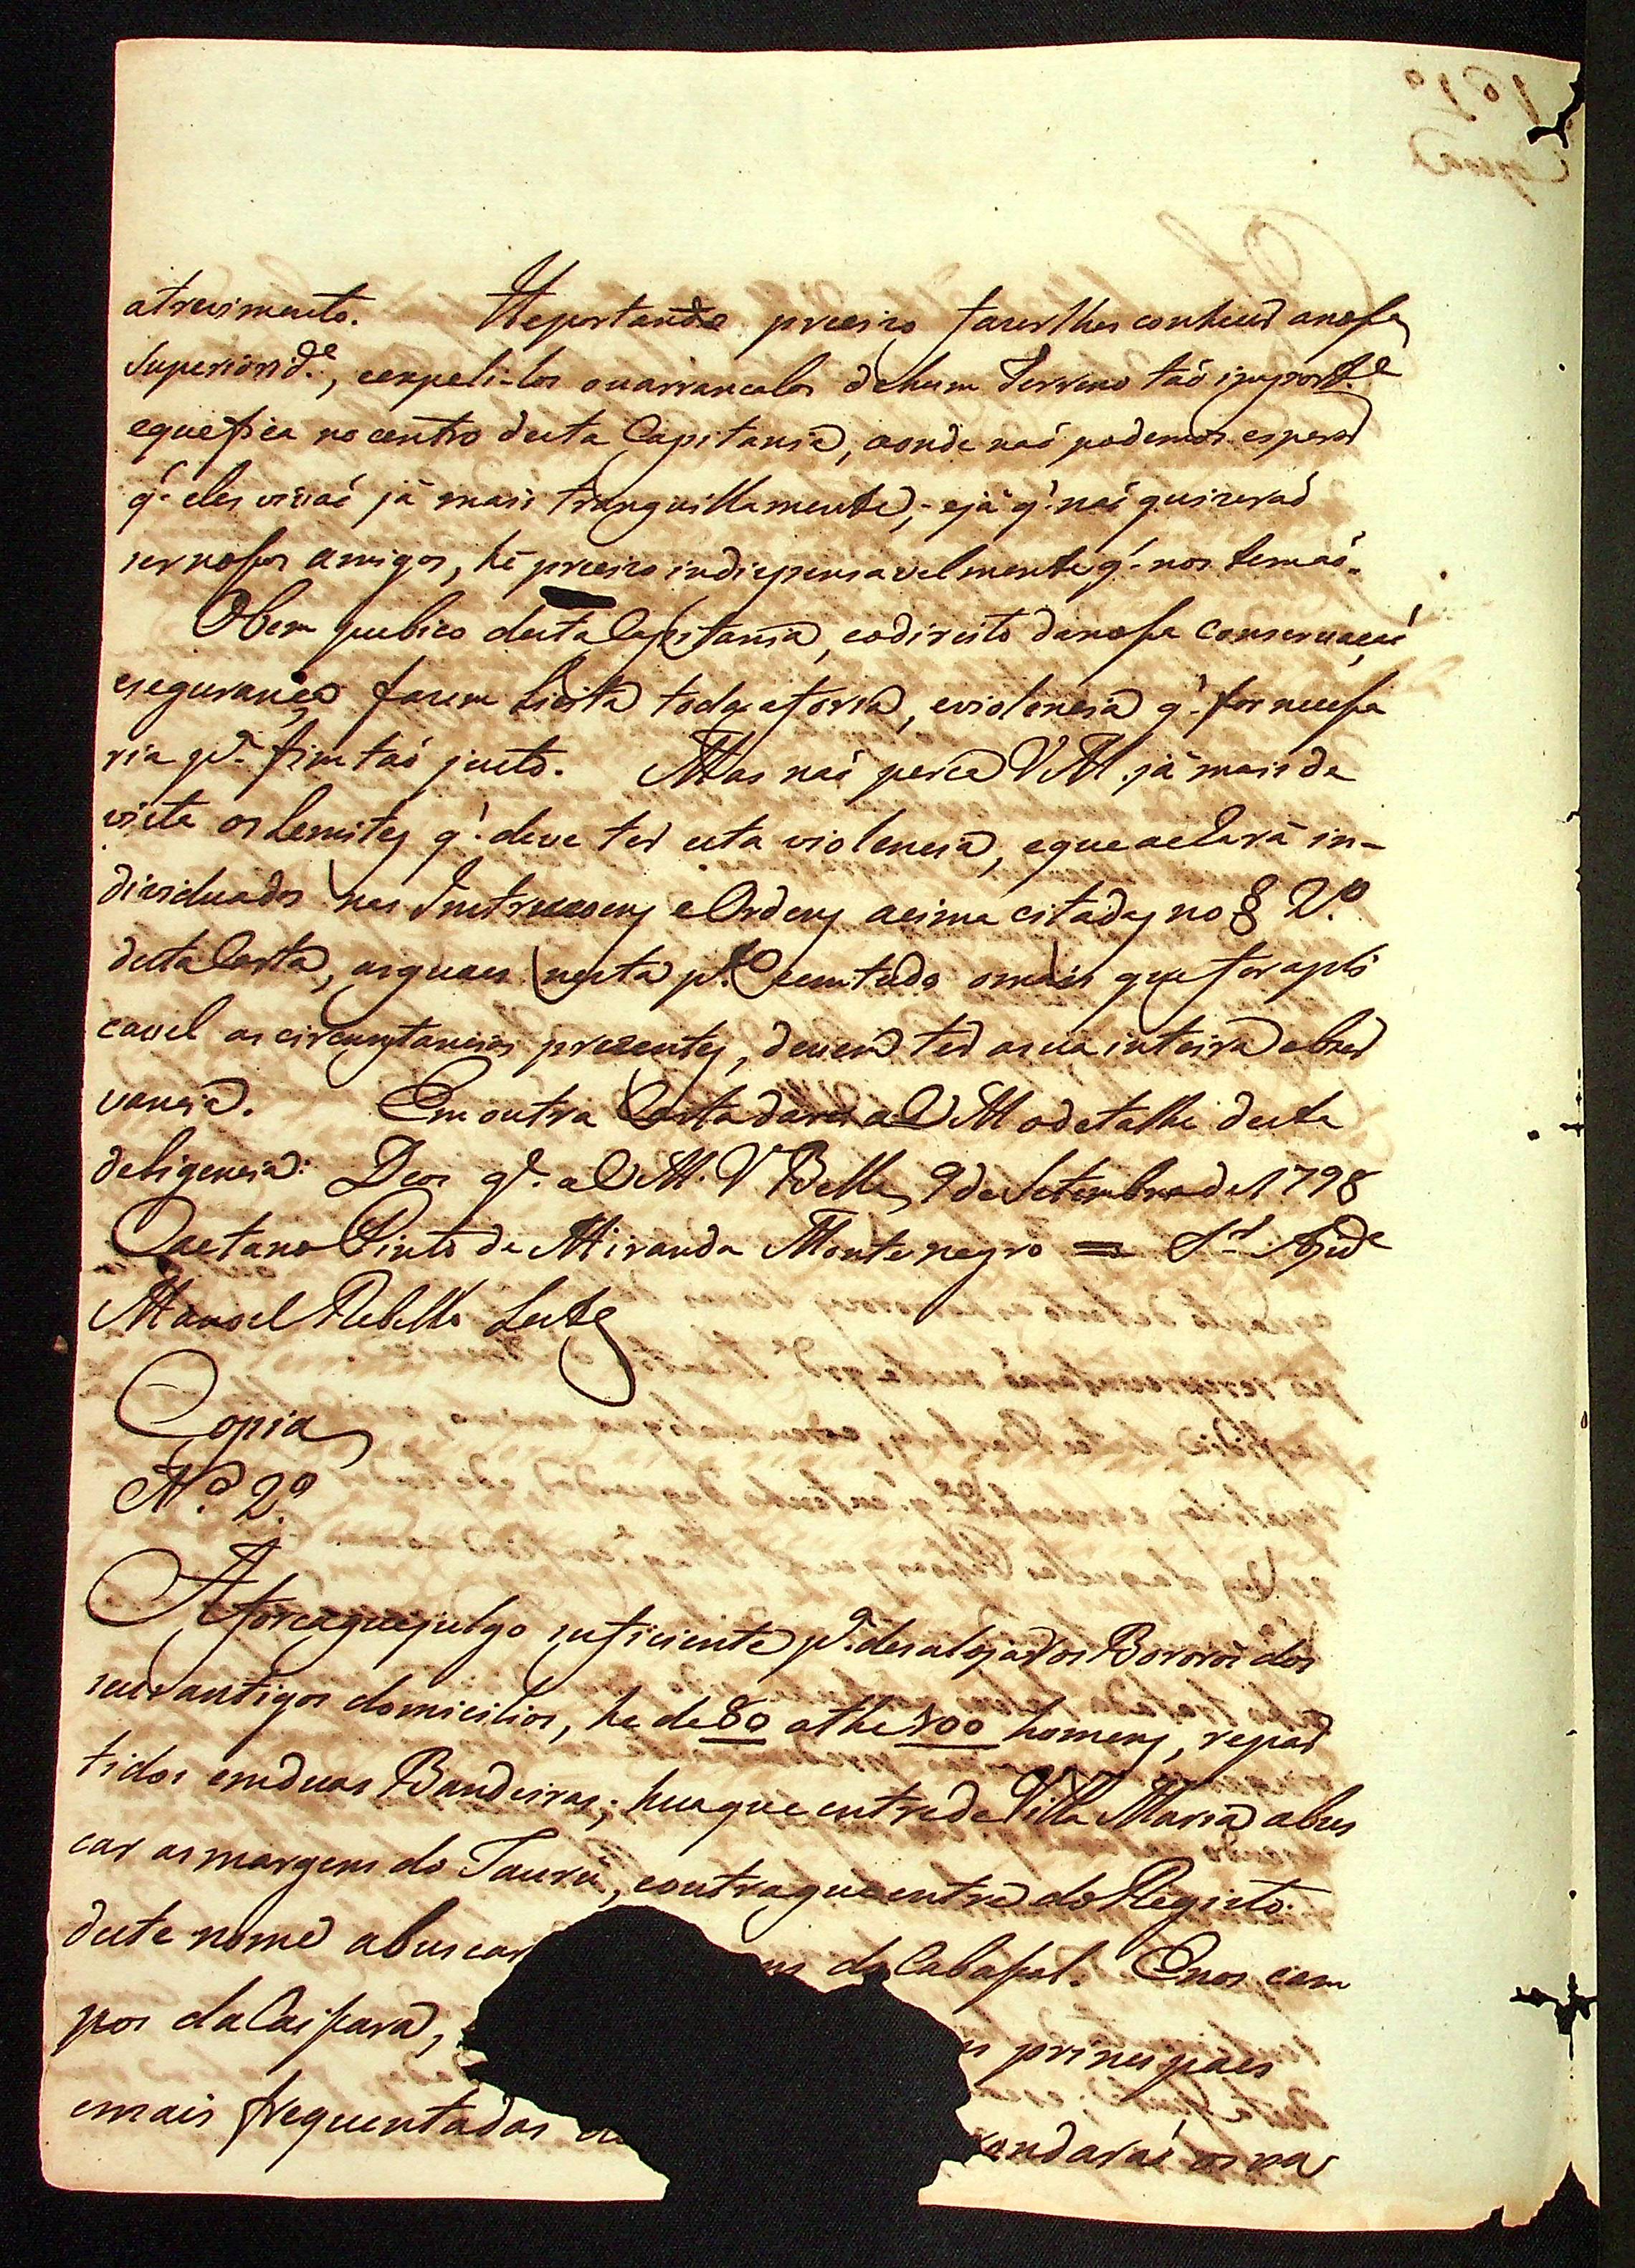 atrevimento. He portanto preciso fazerlhes conhecer anossa
Superiorid.e, eexpeli-los ouarrancalos dehum Terreno taõ import.e
equefica no centro desta Capitania, aonde naõ podemos esperar
q̃ eles vivaõ já mais tranquillamente; ejá q̃ naõ quizeraõ
ser nossos amigos, hé preciso indispensavelmente q̃ nos temaõ.
Obem publico desta Capitania, eodireito danossa conservaçaõ
eseguransa fazem Licita toda aforsa, eviolencia q̃ for necessa
ria p.a fim taõ justo. Mas naõ perca VM. já mais de
vista os Lemites q̃ deve ter esta violencia, equeachará in-
dividuados nas Instrucoens eOrdens acima citadas no § 2.o
desta Carta, asquaes nesta p.te eemtudo omais que for apli
cavel as circunstancias prezentes, deverá ter asua inteira obser
vancia. Em outra Carta darei a VM odetalhe desta
deligencia: Deos g.e a VM. V.a Bella 9 de Setembro de 1798
Caetano Pinto de Miranda Montenegro = S.r Ajud.e
Manoel Rebello Leite
Copia
N.o 2.o
Aforcaquejulgo suficiente p.a desalojar os Bororós dos
seus antigos domicilios, he de 80 athe 100 homens, repar
tidos emduas Bandeiras; huaque entre de Villa Maria abus
car as margens do Jaurú, eoutraqueentre do Registo
deste nome abuscar do Cabasal. Enos cam
pos da Caissara, principaes
emais frequentadas